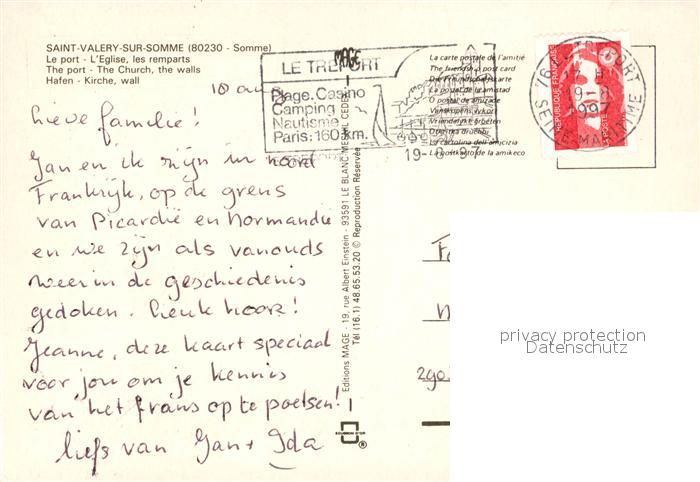 SAINT-VALERY-SUR-SOMME (80230 - Somme)
Le port - L'Eglise, les remparts
The port - The Church, the walls
Hafen - Kirche, wall
MAGE
LE TREPORT
Plage. Casino
Camping
Nautisme
Paris: 160 km.
La carte postale de l'amitié
The friendship post card
La postal de la amistad
La cartolina dell'amicizia
La postkarto de la amikeco
19-8-97
76 LE TREPORT
1997
SEINE-MARITIME
REPUBLIQUE FRANÇAISE
LA POSTE
18 aug
Lieve familie!
Jan en ik zijn in noord
Frankrijk, op de grens
van Picardië en Normandië
en we zijn als vanouds
weer in de geschiedenis
gedoken. Leuk hoor!
Jeanne, deze kaart speciaal
voor jou om je kennis
van het frans op te poetsen!
liefs van Jan + Ida
Editions MAGE - 19, rue Albert Einstein - 93591 LE BLANC-MESNIL CEDEX
Tél (16.1) 48.65.53.20 © Reproduction Réservée
privacy protection
Datenschutz